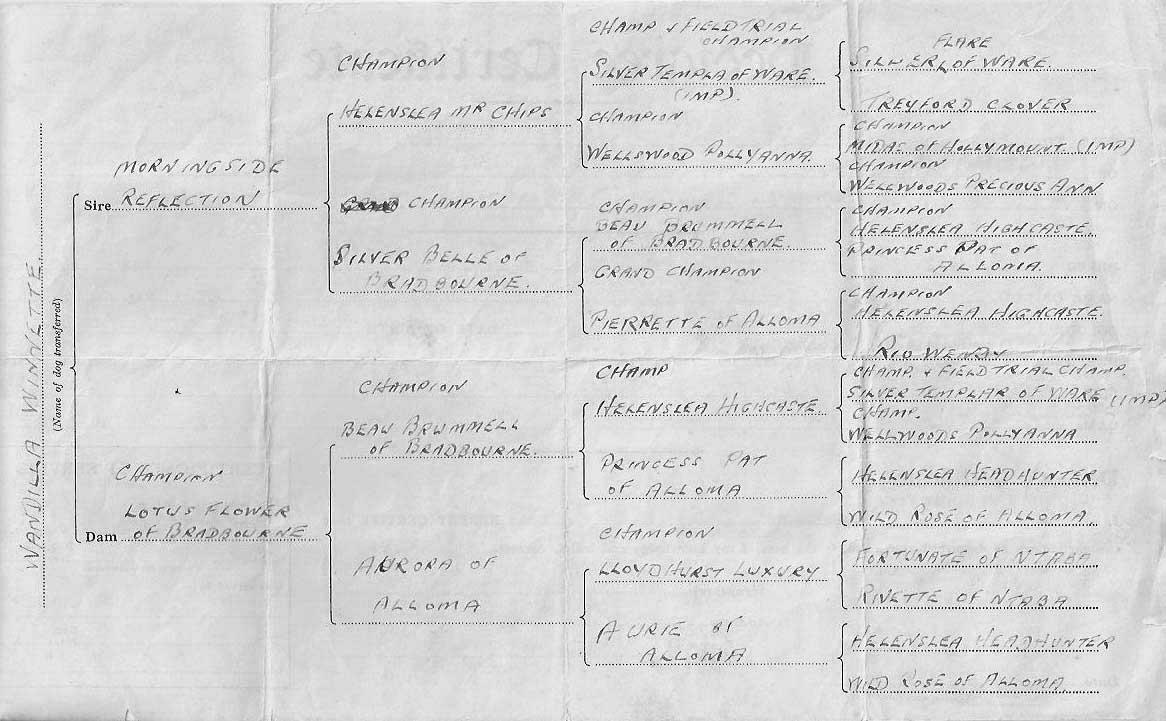 WANDILLA WINNETTE
(Name of dog transferred)
MORNINGSIDE
Sire REFLECTION
CHAMPION
LOTUS FLOWER
Dam OF BRADBOURNE
CHAMPION
HELENSLEA MR CHIPS
CHAMPION
SILVER BELLE OF
BRADBOURNE.
CHAMPION
BEAU BRUMMELL
OF BRADBOURNE.
AURORA OF
ALLOMA
CHAMP & FIELD TRIAL
CHAMPION
SILVER TEMPLA OF WARE.
(IMP).
CHAMPION
WELLSWOOD POLLYANNA.
CHAMPION
BEAU BRUMMELL
OF BRADBOURNE.
GRAND CHAMPION
PIERRETTE OF ALLOMA
CHAMP
HELENSLEA HIGHCASTE.
PRINCESS PAT
OF ALLOMA
CHAMPION
LLOYDHURST LUXURY
AURIE OF
ALLOMA
FLARE
OF WARE.
TREYFORD CLOVER
CHAMPION
MIDAS OF HOLLYMOUNT (IMP)
CHAMPION
WELLWOODS PRECIOUS ANN
CHAMPION
HELENSLEA HIGHCASTE.
PRINCESS PAT OF
ALLOMA.
CHAMPION
HELENSLEA HIGHCASTE.
RIO WENDY
CHAMP. & FIELD TRIAL CHAMP.
SILVER TEMPLAR OF WARE (IMP)
CHAMP.
WELLWOODS POLLYANNA
HELENSLEA HEADHUNTER
WILD ROSE OF ALLOMA
FORTUNATE OF NTABA
RINETTE OF NTABA
HELENSLEA HEADHUNTER
WILD ROSE OF ALLOMA